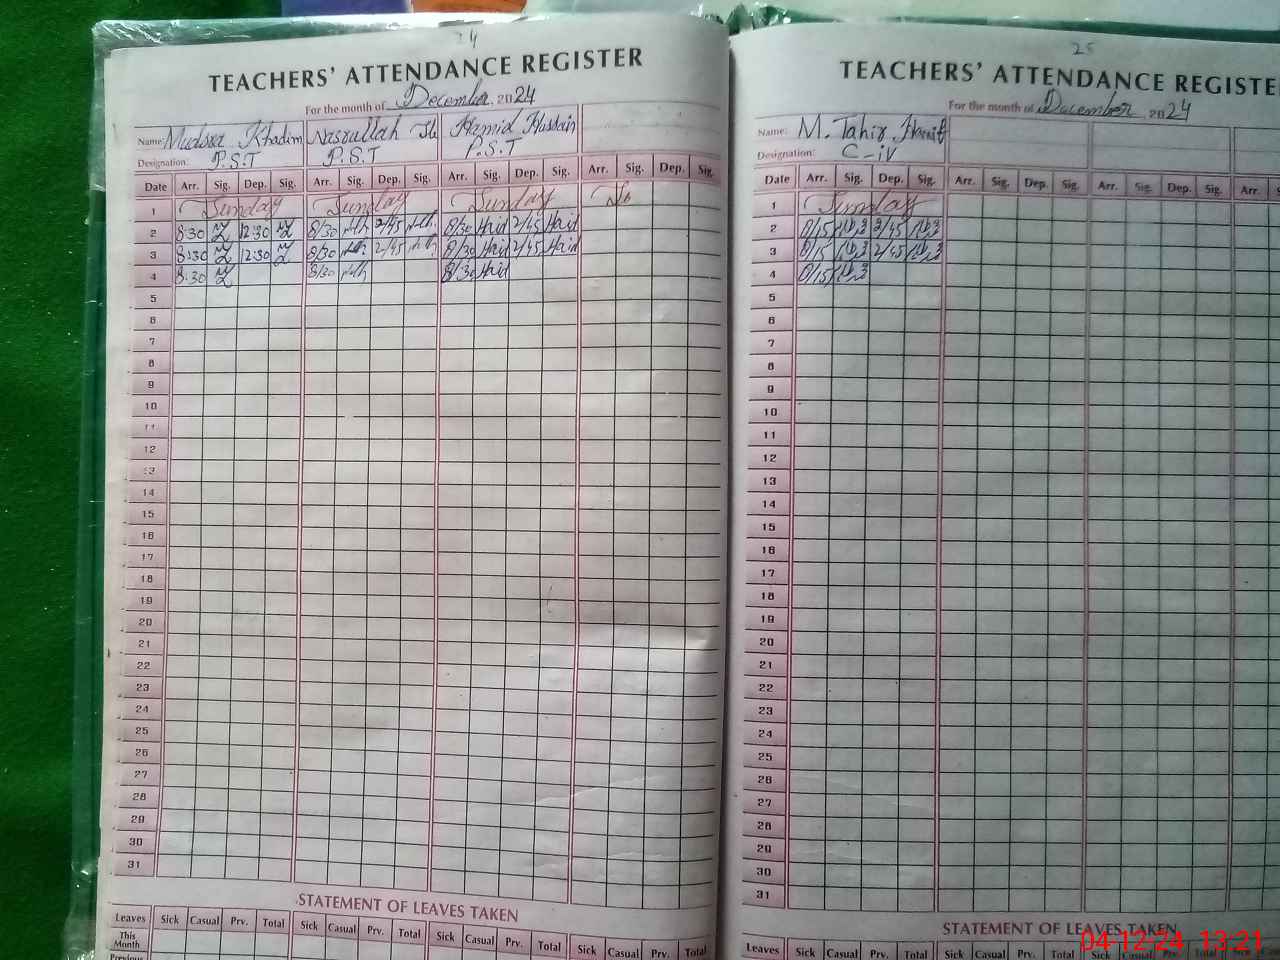 24
TEACHERS' ATTENDANCE REGISTER
For the month of December, 2024
Name: Mudssr Khadim Nasrullah Hamid Hussain
Designation: P.S.T P.S.T P.S.T
Date Arr. Sig. Dep. Sig. Arr. Sig. Dep. Sig. Arr. Sig. Dep. Sig. Arr. Sig. Dep. Sig.
1 Sunday Sunday Sunday
2 8:30 12:30 8/30 2/45 8/30 Haid 2/45 Haid
3 8:30 12:30 8/30 2/45 8/30 Haid 2/45 Haid
4 8:30 8/30 8/30 Haid
5
6
7
8
9
10
11
12
13
14
15
16
17
18
19
20
21
22
23
24
25
26
27
28
29
30
31
STATEMENT OF LEAVES TAKEN
Leaves Sick Casual Prv. Total Sick Casual Prv. Total Sick Casual Prv. Total Sick Casual Prv. Total
This
Month
Previous
25
TEACHERS' ATTENDANCE REGISTE
For the month of December 2024
Name: M. Tahir Hanif
Designation: C-iV
Date Arr. Sig. Dep. Sig. Arr. Sig. Dep. Sig. Arr. Sig. Dep. Sig. Arr. S
1 Sunday
2 8/15 2/45
3 8/15 2/45
4 8/15
5
6
7
8
9
10
11
12
13
14
15
16
17
18
19
20
21
22
23
24
25
26
27
28
29
30
31
STATEMENT OF LEAVES TAKEN
Leaves Sick Casual Prv. Total Sick Casual Prv. Total Sick Casual Prv. Total Sick
04-12-24 13:21